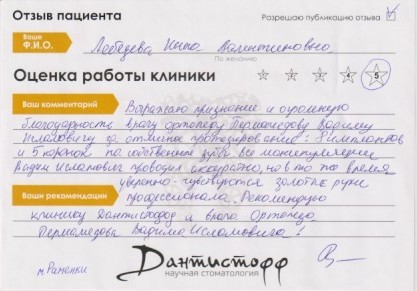 Отзыв пациента
Разрешаю публикацию отзыва
Ваше Ф.И.О.
Лебедева Инна Валентиновна
По желанию
Оценка работы клиники
1 2 3 4 5
Ваш комментарий
Выражаю признание и огромную
благодарность врачу ортопеду Пермамедову Вадиму
Исламовичу за отличное протезирование: 8 имплантов
и 5 коронок на собственные зубы. Все манипуляции
Вадим Исламович проводил аккуратно, но в то же время
уверенно чувствуются золотые руки
Ваши рекомендации
профессионала. Рекомендую
клинику Дантистофф и врача Ортопеда
Пермамедова Вадима Исламовича!
м. Раменки
Дантистофф
научная стоматология